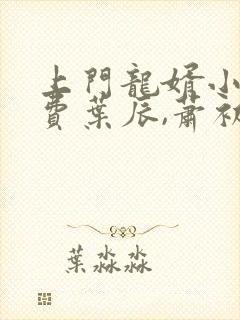 上門龍婿小
費葉辰,蕭初
葉淼淼